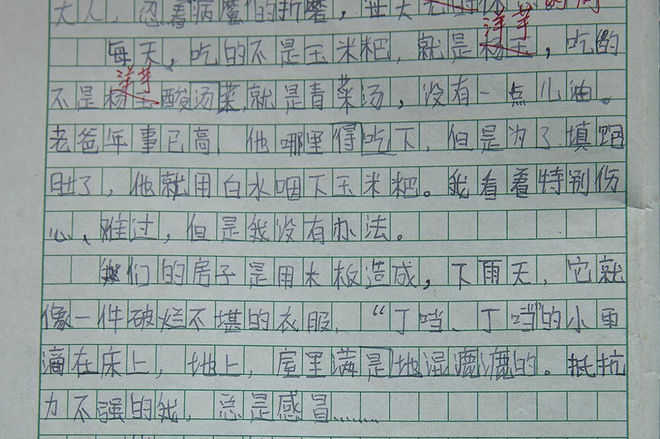 大人，忍着病魔们的折磨，每天
洋芋
每天，吃的不是玉米粑，就是杨玉，吃的
洋芋
不是杨玉酸汤菜，就是青菜汤，没有一点儿油。
老爸年事已高，他哪里得吃下，但是为了填跑
肚了，他就用白水咽下玉米粑。我看着特别伤
心、难过，但是我没有办法。
我们的房子是用木板造成，下雨天，它就
像一件破烂不堪的衣服，“丁当、丁当”的小雨
滴在床上，地上，屋里满是地湿漉漉的。抵抗
力不强的我，总是感冒……